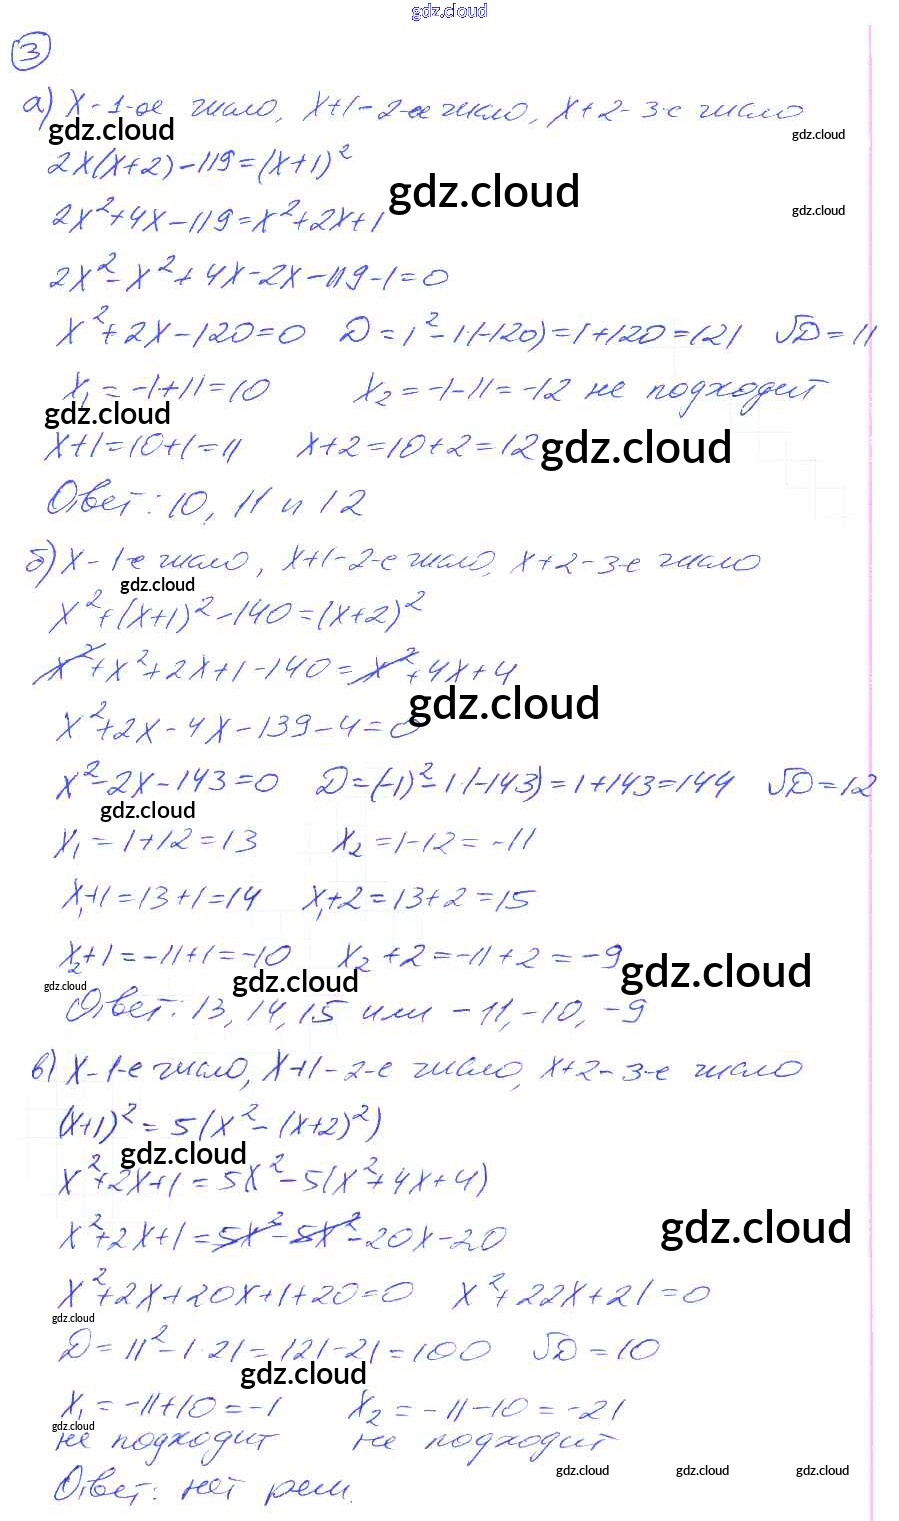 gdz.cloud
3
а) x - 1-ое число, x+1 - 2-ое число, x+2 - 3-е число
gdz.cloud gdz.cloud
2x(x+2) - 119 = (x+1)²
gdz.cloud gdz.cloud
2x² + 4x - 119 = x² + 2x + 1
2x² - x² + 4x - 2x - 119 - 1 = 0
x² + 2x - 120 = 0 D = 1² - 1·(-120) = 1 + 120 = 121 √D = 11
x₁ = -1 + 11 = 10 x₂ = -1 - 11 = -12 не подходит
gdz.cloud
x+1 = 10+1 = 11 x+2 = 10+2 = 12 gdz.cloud
Ответ: 10, 11 и 12
б) x - 1-е число, x+1 - 2-е число, x+2 - 3-е число
gdz.cloud
x² + (x+1)² - 140 = (x+2)²
x² + x² + 2x + 1 - 140 = x² + 4x + 4
gdz.cloud
x² + 2x - 4x - 139 - 4 = 0
x² - 2x - 143 = 0 D = (-1)² - 1·(-143) = 1 + 143 = 144 √D = 12
gdz.cloud
x₁ = 1 + 12 = 13 x₂ = 1 - 12 = -11
x₁+1 = 13+1 = 14 x₁+2 = 13+2 = 15
x₂+1 = -11+1 = -10 x₂+2 = -11+2 = -9 gdz.cloud
gdz.cloud gdz.cloud
Ответ: 13, 14, 15 или -11, -10, -9
в) x - 1-е число, x+1 - 2-е число, x+2 - 3-е число
(x+1)² = 5(x² - (x+2)²)
gdz.cloud
x² + 2x + 1 = 5x² - 5(x² + 4x + 4)
x² + 2x + 1 = 5x² - 5x² - 20x - 20 gdz.cloud
x² + 2x + 20x + 1 + 20 = 0 x² + 22x + 21 = 0
gdz.cloud
D = 11² - 1·21 = 121 - 21 = 100 √D = 10
gdz.cloud
x₁ = -11 + 10 = -1 x₂ = -11 - 10 = -21
gdz.cloud
не подходит не подходит
gdz.cloud gdz.cloud gdz.cloud
Ответ: нет реш.